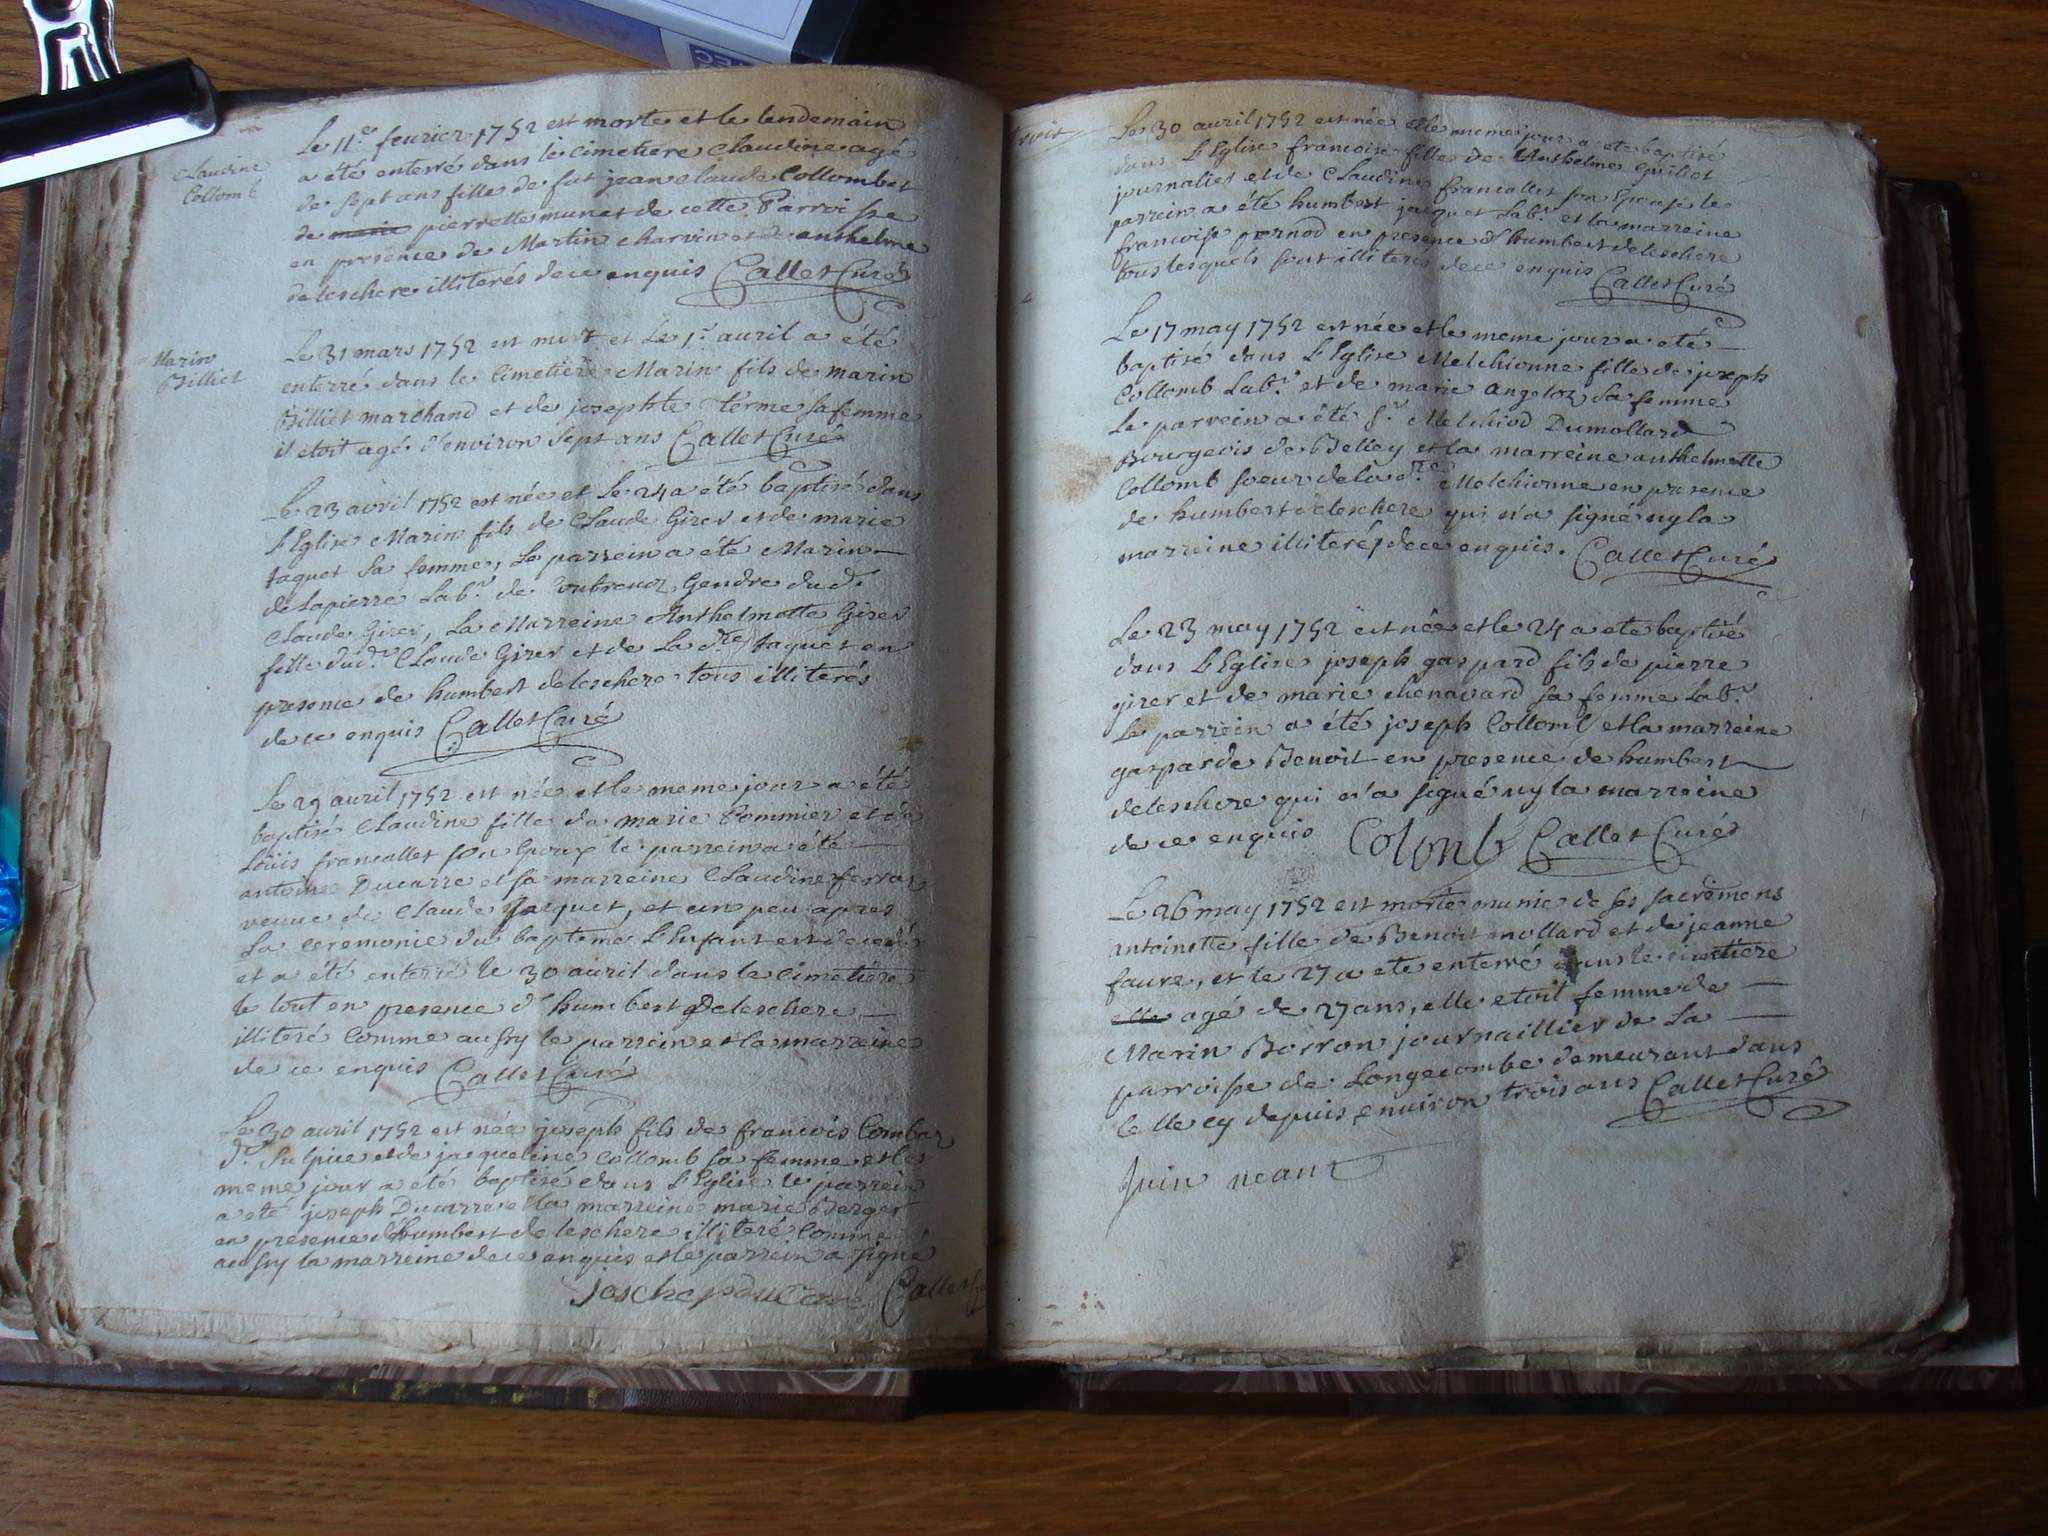 Claudine
Collomb
Le 11e fevrier 1752 est morte et le lendemain
a été enterré dans le cimetiere Claudine agé
de sept ans fille de fut jean claude Collomb et
de marie pierrette munet de cette Parroisse
en presence de Martin charvin et de anthelme
deleschere illiterés de ce enquis Callet Curé
Marin
Billiet
Le 31 mars 1752 est mort et le 1r avril a été
enterré dans le Cimetiere Marin fils de marin
Billiet marchand et de josephte terme sa femme
il etoit agé d'environ sept ans Callet Curé
Le 23 avril 1752 est née et le 24 a été baptisé dans
L'Eglise Marin fils de Claude Girer et de marie
taquet sa femme, Le parrein a été Marin
de Lapierre Labr de Gendre dud.
Claude Girer, La Marreine Anthelmette Girer
fille dudr Claude Girer et de La dre taquet en
presence de humbert deleschere tous illiterés
de ce enquis Callet Curé
Le 29 avril 1752 est née et le meme jour a été
baptisé Claudine fille de marie Pommier et de
Loüis francallet son Epoux le parrein a été
antoine Ducarre et sa marreine Claudine
veuve de Claude Jacquet, et un peu apres
La ceremonie du bapteme L'Enfant est decedé
et a été enterré le 30 avril dans le cimetiere
le tout en presence d'humbert deleschere
illiteré Comme aussy le parrein et la marreine
de ce enquis Callet Curé
Le 30 avril 1752 est née joseph fils de francois Combaz
dt Sulpice et de jacqueline Collomb sa femme et le
meme jour a été baptisé dans L'Eglise le parrein
a été joseph Ducarre et la marreine marie Berger
en presence d'humbert deleschere illiteré Comme
aussy la marreine de ce enquis et le parrein a signé
Joschepducare Callet
trois
Le 30 avril 1752 est née et le meme jour a ete baptisé
dans L'Eglise francoise fille de Anthelme Guillet
journalier et de Claudine francallet son Epouse le
parrein a été humbert jacquet Labr et la marreine
francoise pernod en presence d'humbert deleschere
tous lesquels sont illiterés de ce enquis Callet Curé
Le 17 may 1752 est née et le meme jour a été
baptisé dans L'Eglise Melchionne fille de joseph
Collomb Labr et de marie angeloz sa femme
Le parrein a été Sr Melchiod Dumollard
Bourgeois de Belley et la marreine anthelmette
Collomb soeur de la dre Melchionne en presence
de humbert deleschere qui n'a signé ny la
marreine illiterés de ce enquis. Callet Curé
Le 23 may 1752 est née et le 24 a eté baptisé
dans L'Eglise joseph gaspard fils de pierre
girer et de marie chenavard sa femme Labr
Le parrein a été joseph Collomb et la marreine
gasparde Benoit en presence de humbert
deleschere qui n'a signé ny la marreine
de ce enquis Colonb Callet Curé
Le 26 may 1752 est morte munie de ses sacremens
antoinette fille de Benoit mollard et de jeanne
favre, et le 27 a eté enterré dans le cimetiere
elle agé de 27 ans, elle etoit femme de
Marin Borron journaillier de La
parroisse de Longecombe demeurant dans
celle cy depuis environ trois ans Callet Curé
Juin neant